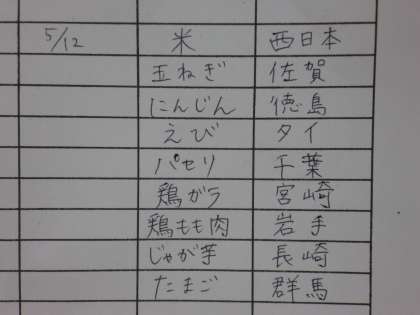 5/12 米 西日本
玉ねぎ 佐賀
にんじん 徳島
えび タイ
パセリ 千葉
鶏ガラ 宮崎
鶏もも肉 岩手
じゃが芋 長崎
たまご 群馬